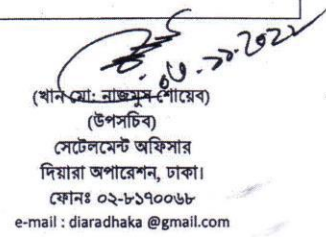 ০৬.১১.২০২২
(খান মো: নাজমুস শোয়েব)
(উপসচিব)
সেটেলমেন্ট অফিসার
দিয়ারা অপারেশন, ঢাকা।
ফোনঃ ০২-৮১৭০০৬৮
e-mail : diaradhaka @gmail.com